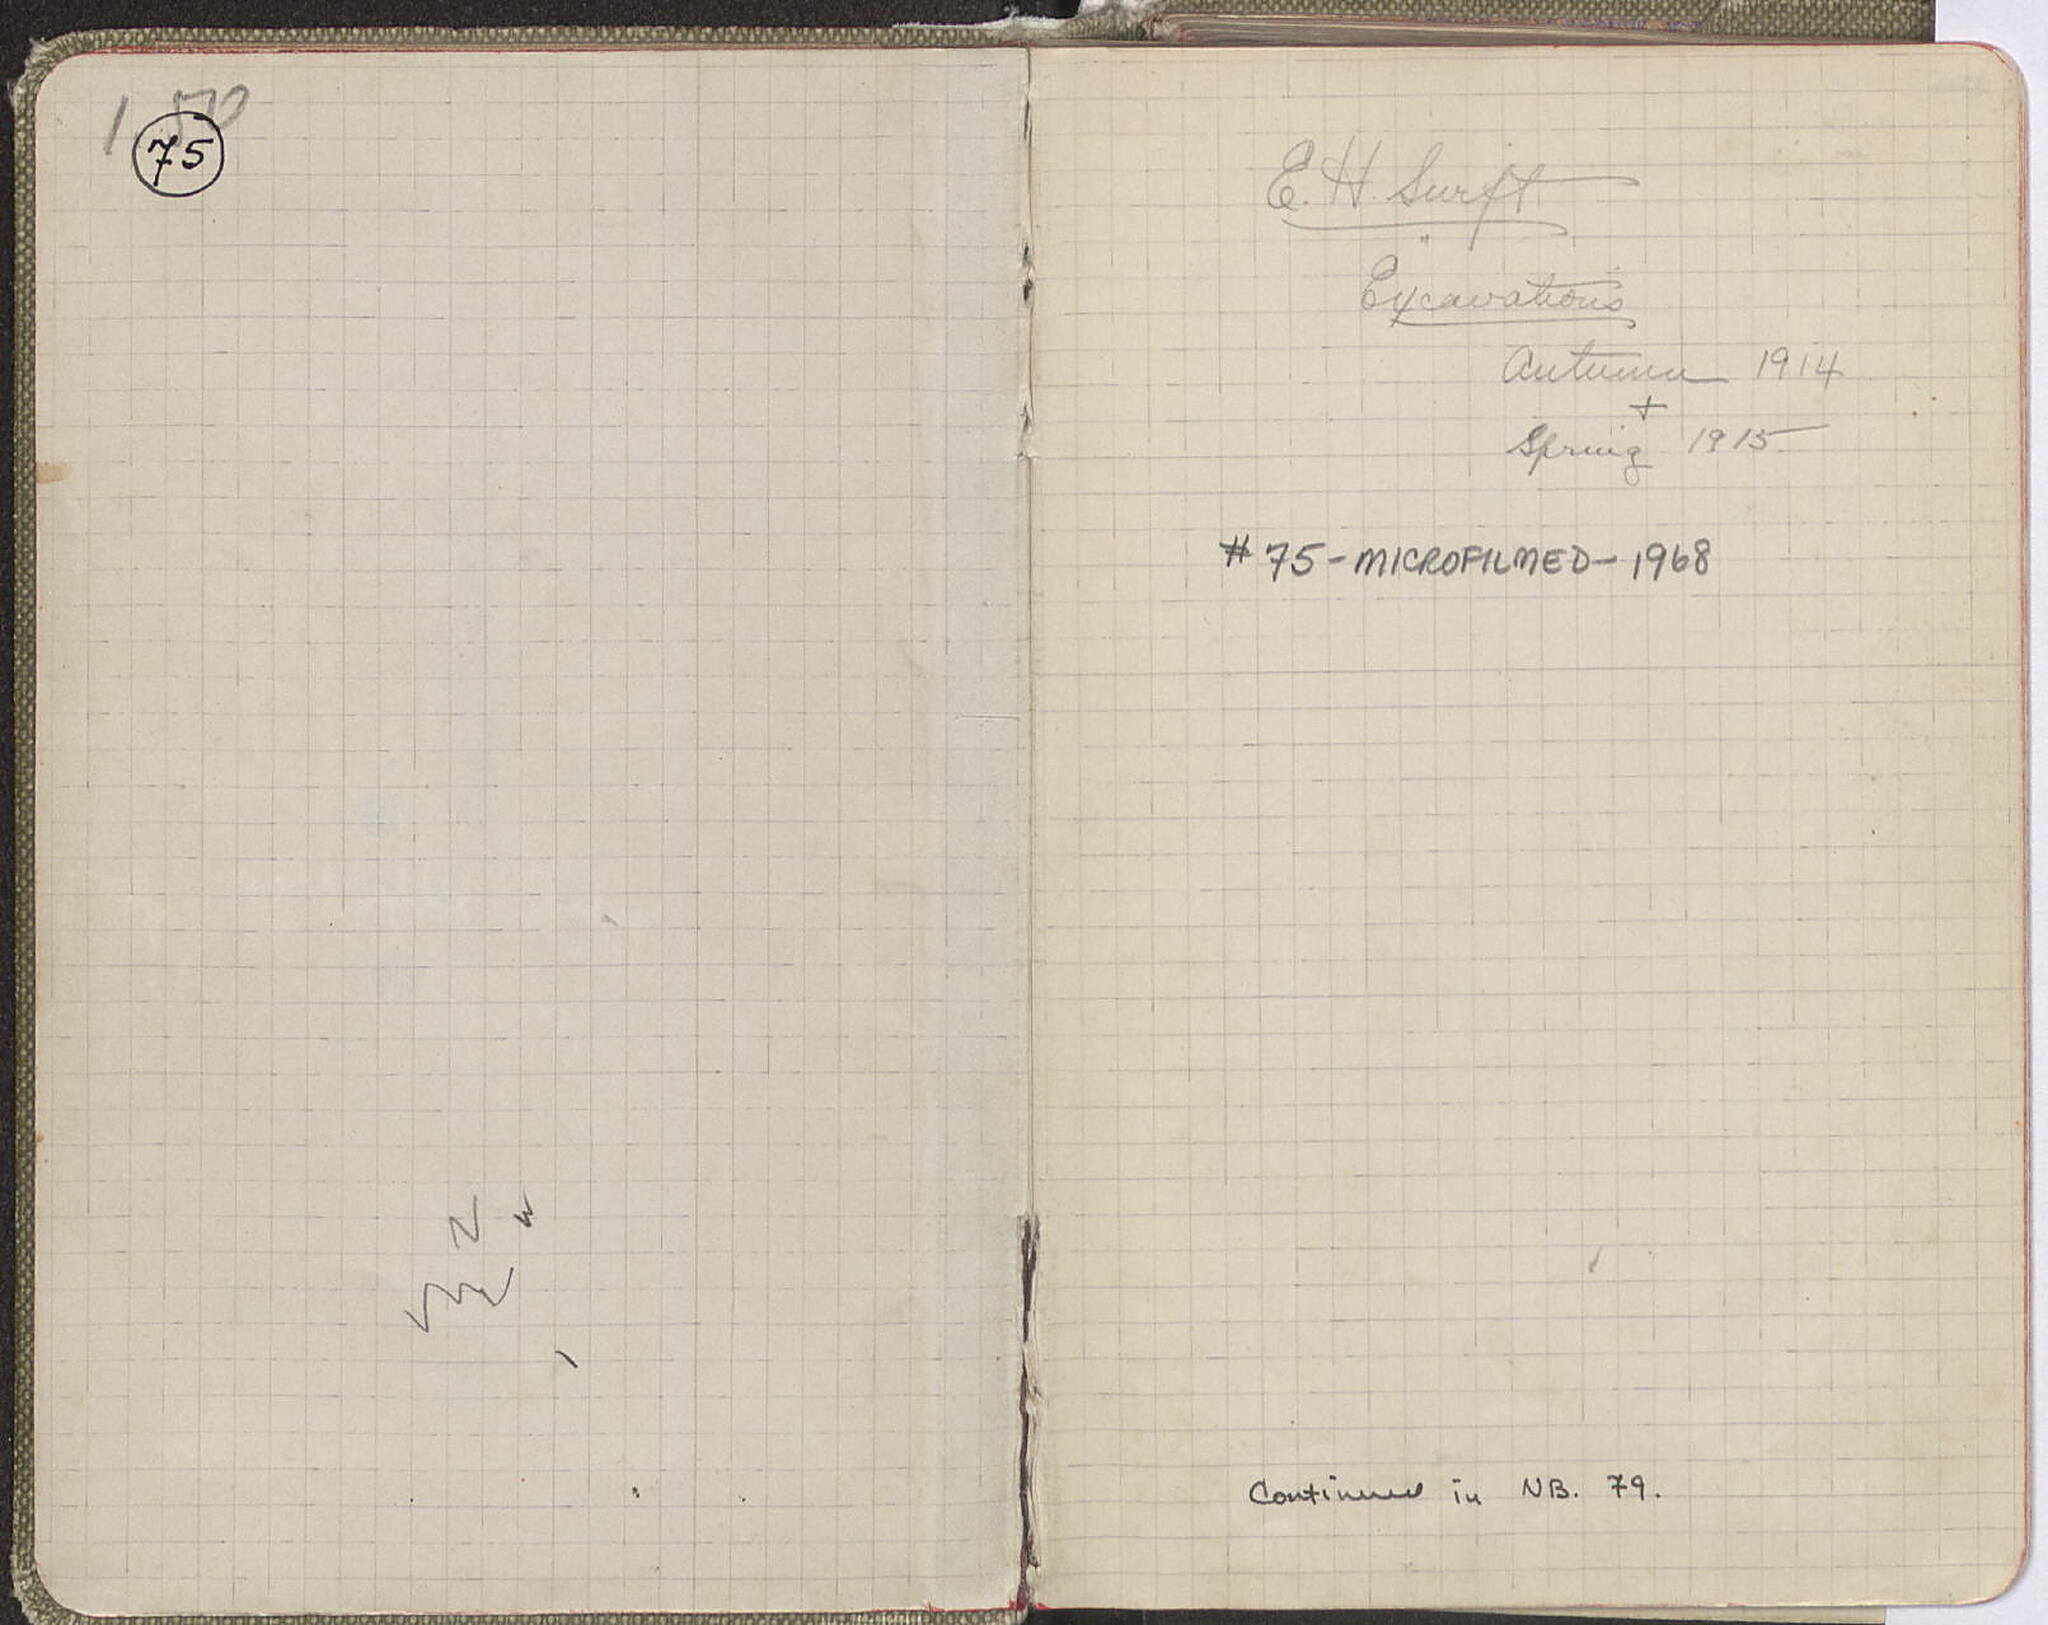 1.50
75
E. H. Swift
Excavations
Autumn 1914
+
Spring 1915
#75-MICROFILMED-1968
Continued in NB. 79.